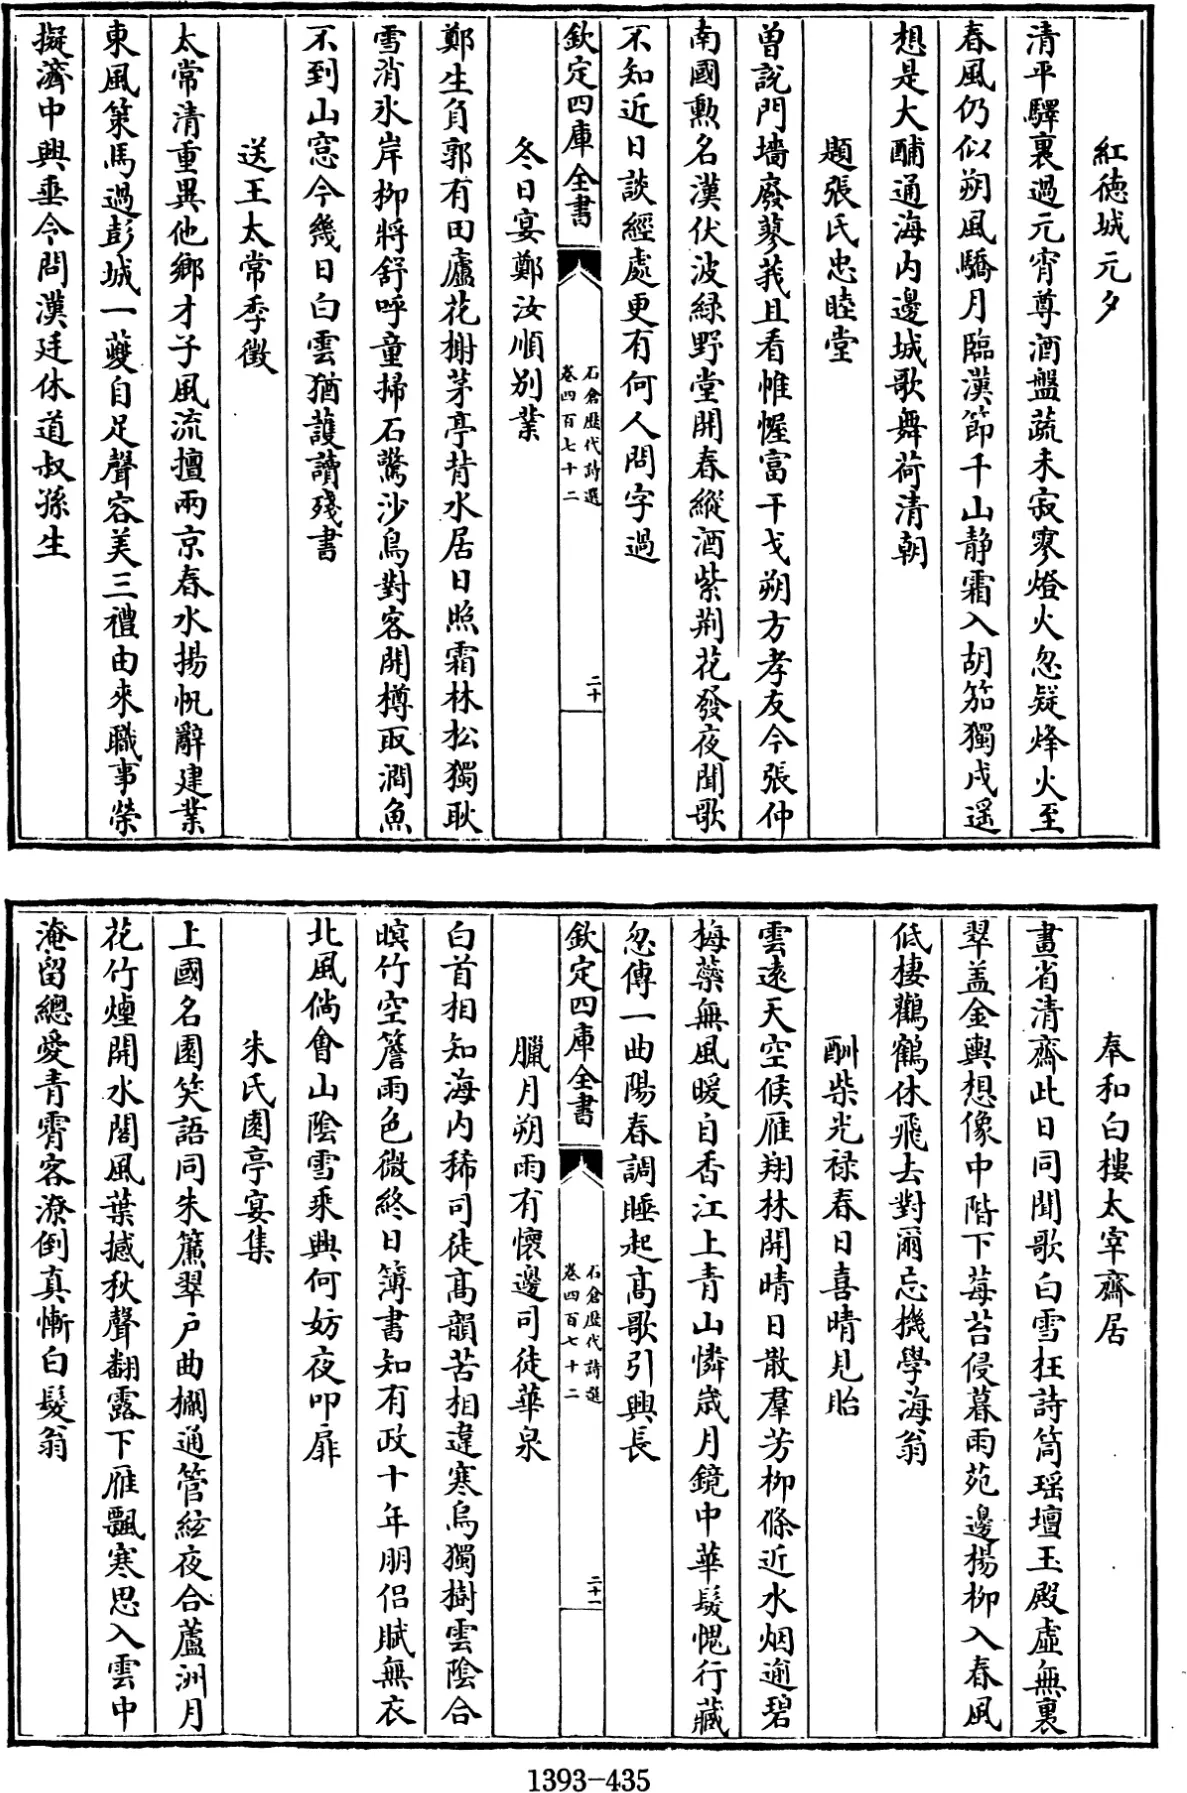 紅德城元夕
清平驛裏過元宵尊酒盤蔬未寂寥燈火忽疑烽火至
春風仍似朔風驕月臨漢節千山静霜入胡笳獨戍遥
想是大酺通海内邊城歌舞荷清朝
題張氏忠睦堂
曽說門墻廢蓼莪且看帷幄富干戈朔方孝友今張仲
南國勲名漢伏波緑野堂開春縱酒紫荆花發夜聞歌
不知近日談經處更有何人問字過
欽定四庫全書
石倉歴代詩選
卷四百七十二
二十
冬日宴鄭汝順别業
鄭生負郭有田廬花榭茅亭背水居日照霜林松獨耿
雪消氷岸栁將舒呼童掃石驚沙鳥對客開樽取澗魚
不到山窓今幾日白雲猶護讀殘書
送王太常季徵
太常清重異他鄉才子風流擅兩京春水揚帆辭建業
東風策馬過彭城一夔自足聲容美三禮由來職事榮
擬濟中興垂令問漢廷休道叔孫生
奉和白樓太宰齋居
畫省清齋此日同聞歌白雪枉詩筒瑶壇玉殿虚無裏
翠盖金輿想像中階下莓苔侵暮雨苑邊楊栁入春風
低棲鸛鶴休飛去對爾忘機學海翁
酬柴光禄春日喜晴見貽
雲逺天空候雁翔林開晴日散羣芳栁條近水烟逾碧
梅蘂無風暖自香江上青山憐歳月鏡中華髪愧行藏
忽傳一曲陽春調睡起髙歌引興長
欽定四庫全書
石倉歴代詩選
卷四百七十二
二十一
臘月朔雨有懷邊司徒華泉
白首相知海内稀司徒髙韻苦相違寒烏獨樹雲陰合
暝竹空簷雨色微終日簿書知有政十年朋侣賦無衣
北風倘會山陰雪乘興何妨夜叩扉
朱氏園亭宴集
上國名園笑語同朱簾翠户曲欄通管絃夜合蘆洲月
花竹煙開水閣風葉撼秋聲翻露下雁飄寒思入雲中
淹留總愛青霄客潦倒真慚白髪翁
1393-435